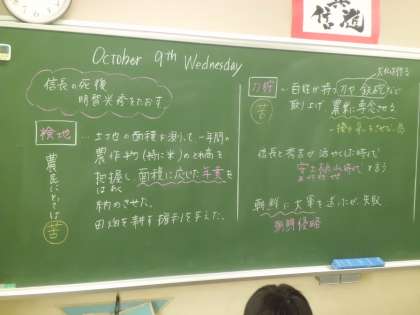 October 9th Wednesday
信長の死後
明智光秀をたおす。
検地
…土地の面積を測って一年間の
農作物(特に米)のとれ高を
把握し面積に応じた年貢を
はあく
納めさせた。
田畑を耕す権利を与えた。
農民にとっては
苦
刀狩
苦
…百姓が持つ刀や鉄砲など
取り上げ農業に専念させる
信長と秀吉が活やくした時代を
安土桃山時代と言う
朝鮮に大軍を送ったが、失敗
朝鮮侵略